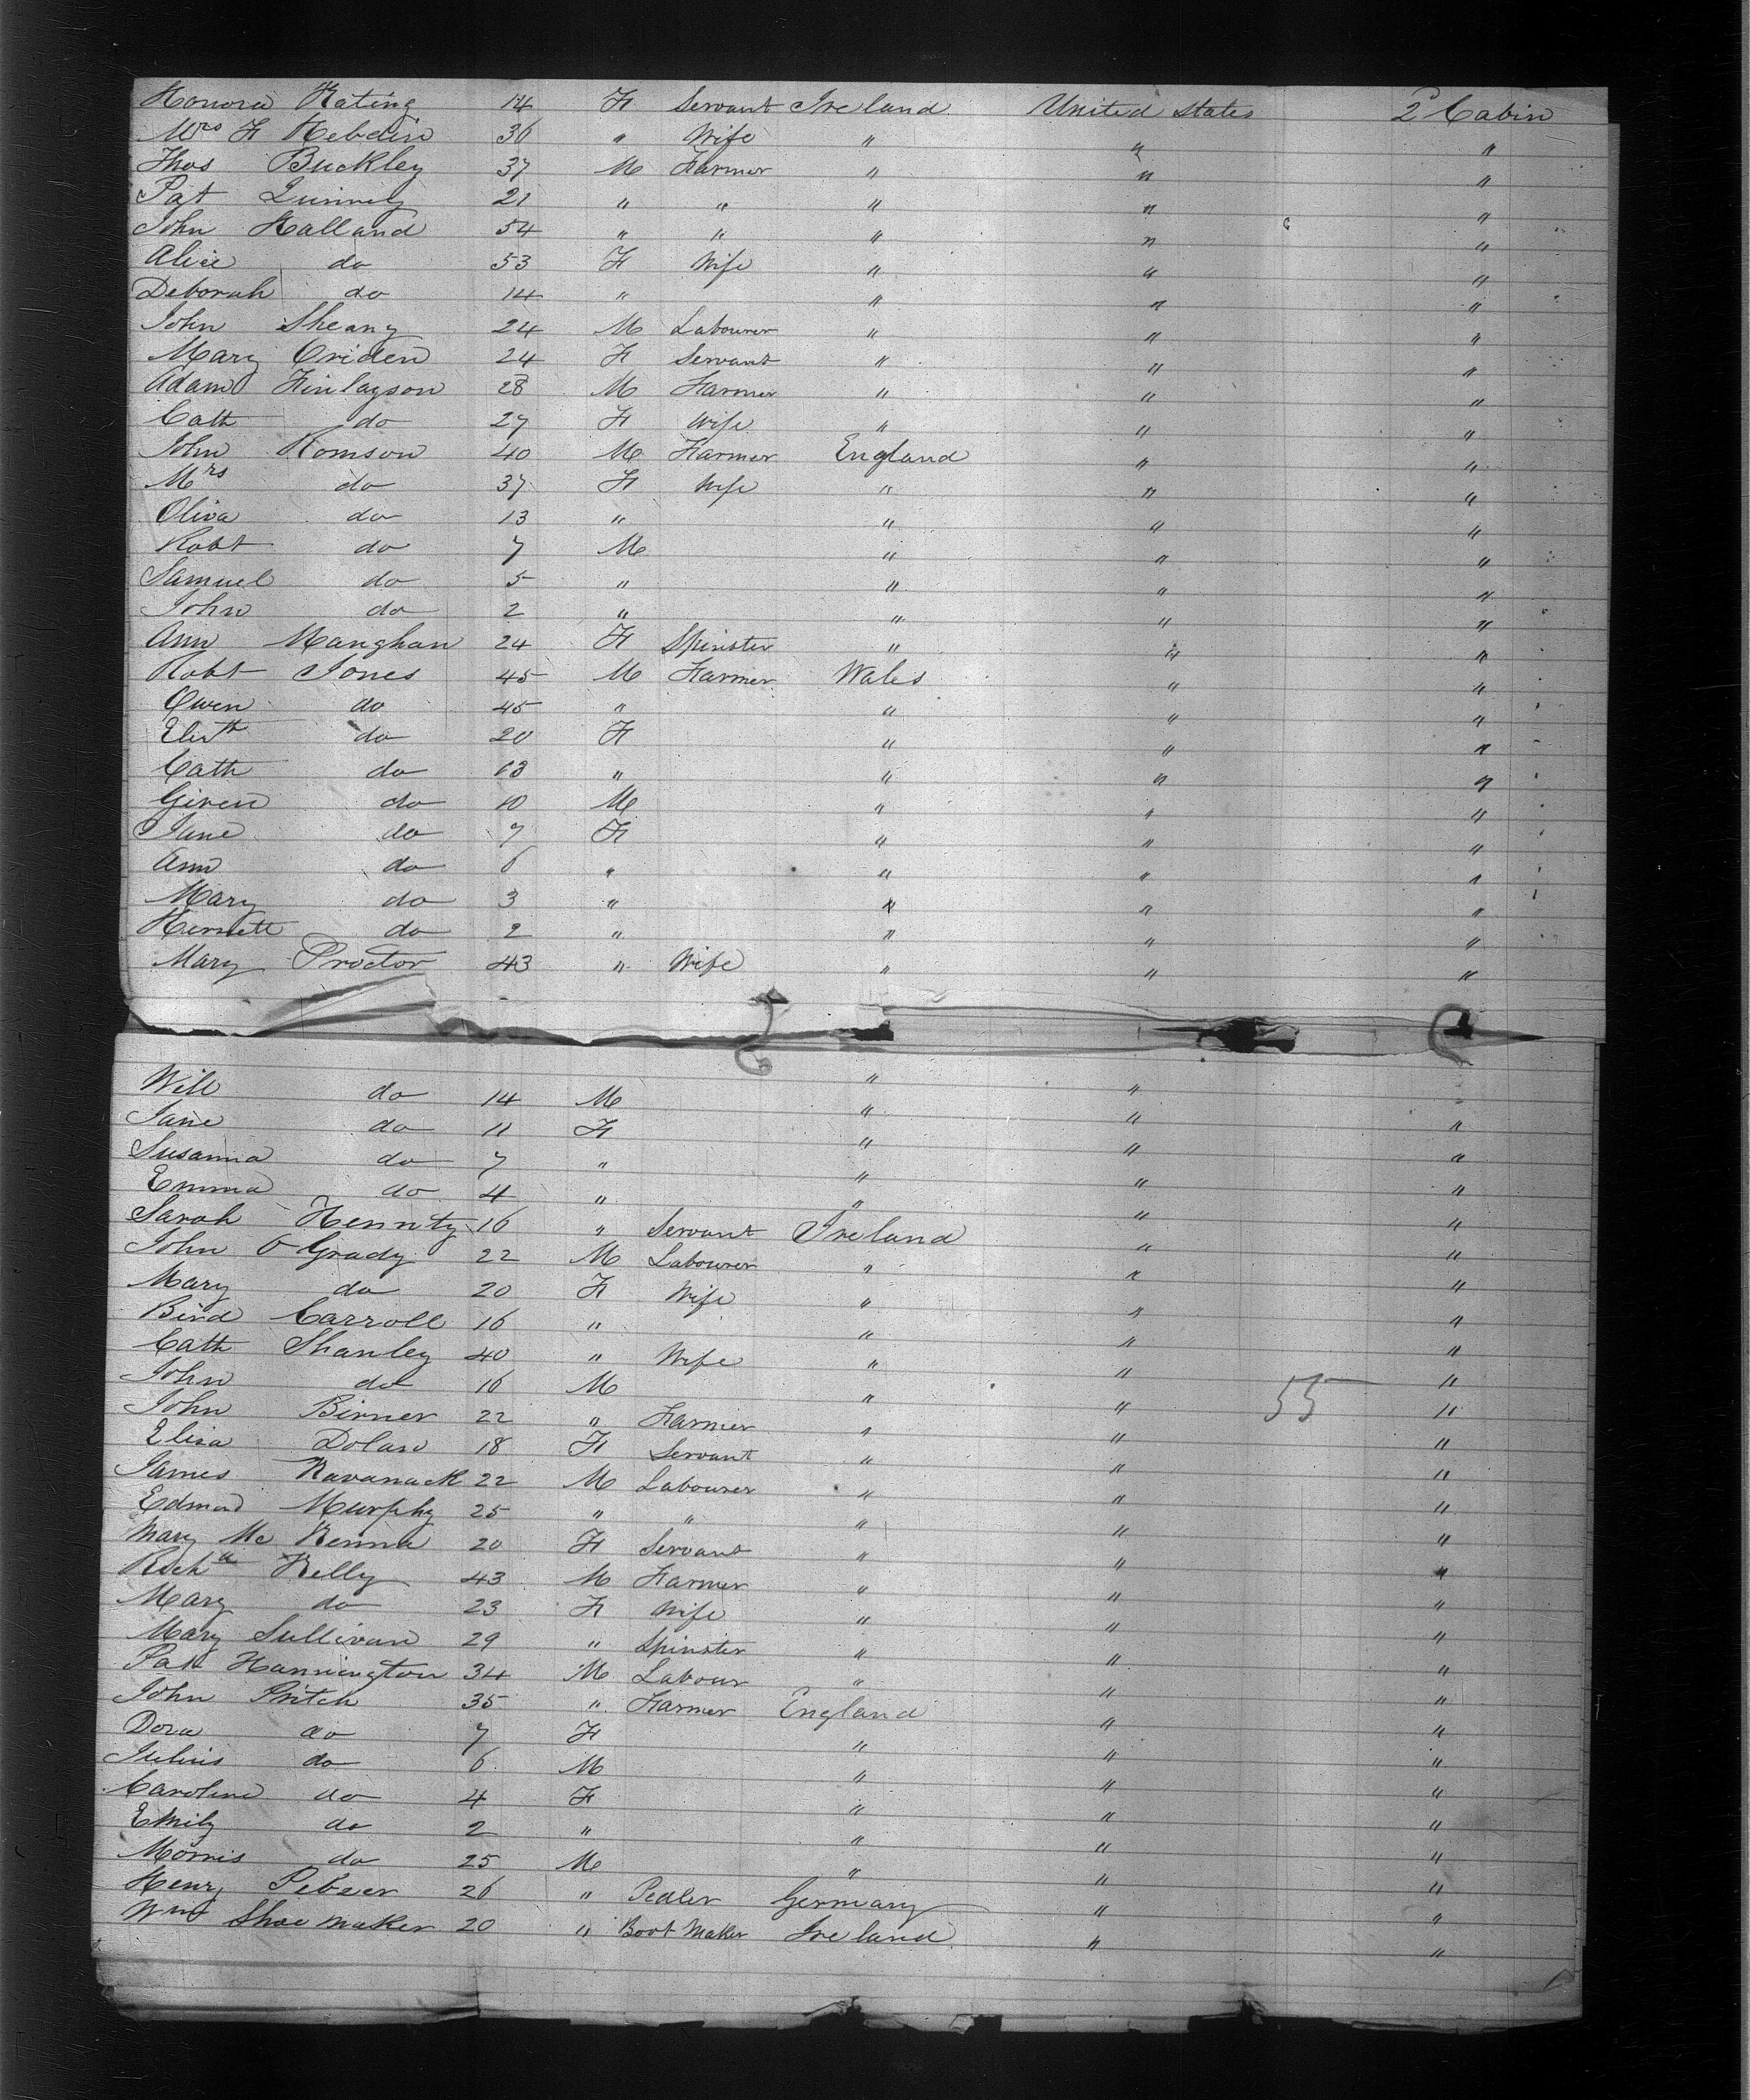 Honora Kating 14 F Servant Ireland United States 2d Cabin
Mrs F Hebdin 36 " Wife " " "
Thos Buckley 37 M Farmer " " "
Pat 21 " " " " "
John Halland 54 " " " " "
Alice do 53 F Wife " " "
Deborah do 14 " " " "
John Sheany 24 M Labourer " " "
Mary Criden 24 F Servant " " "
Adam Finlayson 28 M Farmer " " "
Cath do 27 F Wife " " "
John Romson 40 M Farmer England " "
Mrs do 37 F Wife " " "
Oliva do 13 " " " "
Robt do 7 M " " "
Samuel do 5 " " " "
John do 2 " " " "
Ann Manghan 24 F Spinster " " "
Robt Jones 45 M Farmer Wales " "
Owen do 45 " " " "
Elizth do 20 F " " "
Cath do 13 " " " "
Given do 10 M " " "
Jane do 7 F " " "
Ann do 6 " " " "
Mary do 3 " " " "
do 2 " " " "
Mary Proctor 43 " Wife " " "
Will do 14 M " " "
Jane do 11 F " " "
Susanna do 7 " " " "
Emma do 4 " " " "
Sarah Hennity 16 " Servant Ireland " "
John O Grady 22 M Labourer " " "
Mary do 20 F Wife " " "
Bird Carroll 16 " " " "
Cath Shanley 40 " Wife " " "
John do 16 M " " "
John Birner 22 " Farmer " " 55 "
Eliza Dolan 18 F Servant " " "
James Kavanack 22 M Labourer " " "
Edmond Murphy 25 " " " " "
Mary Mc Kenna 20 F Servant " " "
Richd Kelly 43 M Farmer " " "
Mary do 23 F Wife " " "
Mary Sullivan 29 " Spinster " " "
Pat Hannington 34 M Labour " " "
John Pritch 35 " Farmer England " "
Dora do 7 F " " "
Julius do 6 M " " "
Caroline do 4 F " " "
Emily do 2 " " " "
Morris do 25 M " " "
Henry Peltzer 26 " Pedler Germany " "
Wm Shoe maker 20 " Boot Maker Ireland " "